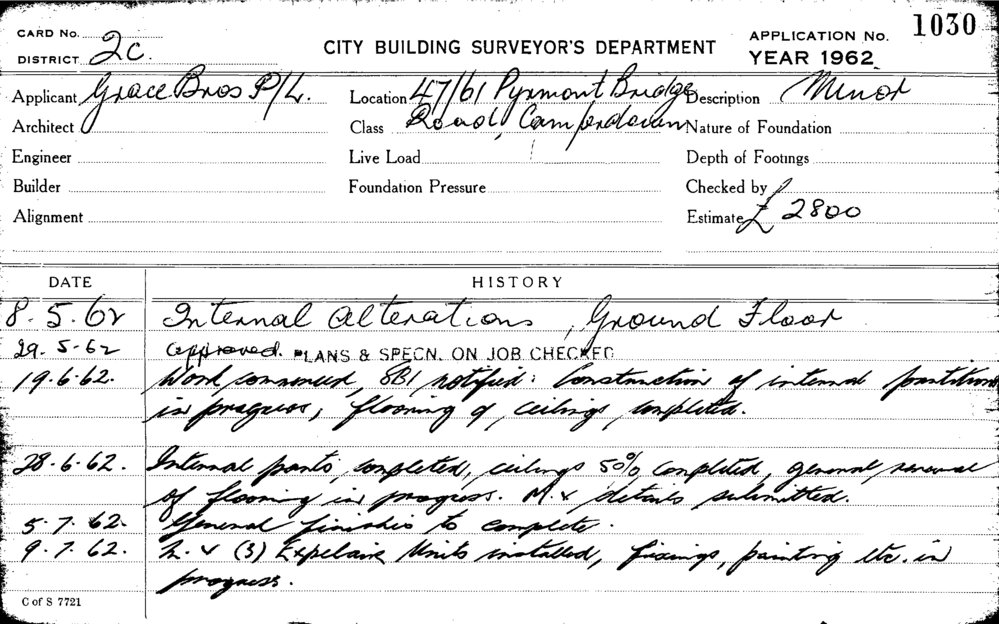 CARD No.
DISTRICT 2c.
CITY BUILDING SURVEYOR'S DEPARTMENT
APPLICATION No. 1030
YEAR 1962
Applicant Grace Bros P/L.
Location 47/61 Pyrmont Bridge
Description Minor
Architect
Class Road, Camperdown
Nature of Foundation
Engineer
Live Load
Depth of Footings
Builder
Foundation Pressure
Checked by
Alignment
Estimate £ 2800
DATE
HISTORY
8.5.62 Internal alterations, Ground Floor
29.5.62 approved. PLANS & SPECN. ON JOB CHECKED
19.6.62. Work commenced, SBI notified: Construction of internal partitions
in progress, flooring of ceilings completed.
28.6.62. Internal parts completed, ceilings 50% completed, general renewal
of flooring in progress. M.V details submitted.
5.7.62. General finishes to complete.
9.7.62. (3) Expelair Units installed, fixings, painting etc. in
progress.
C of S 7721